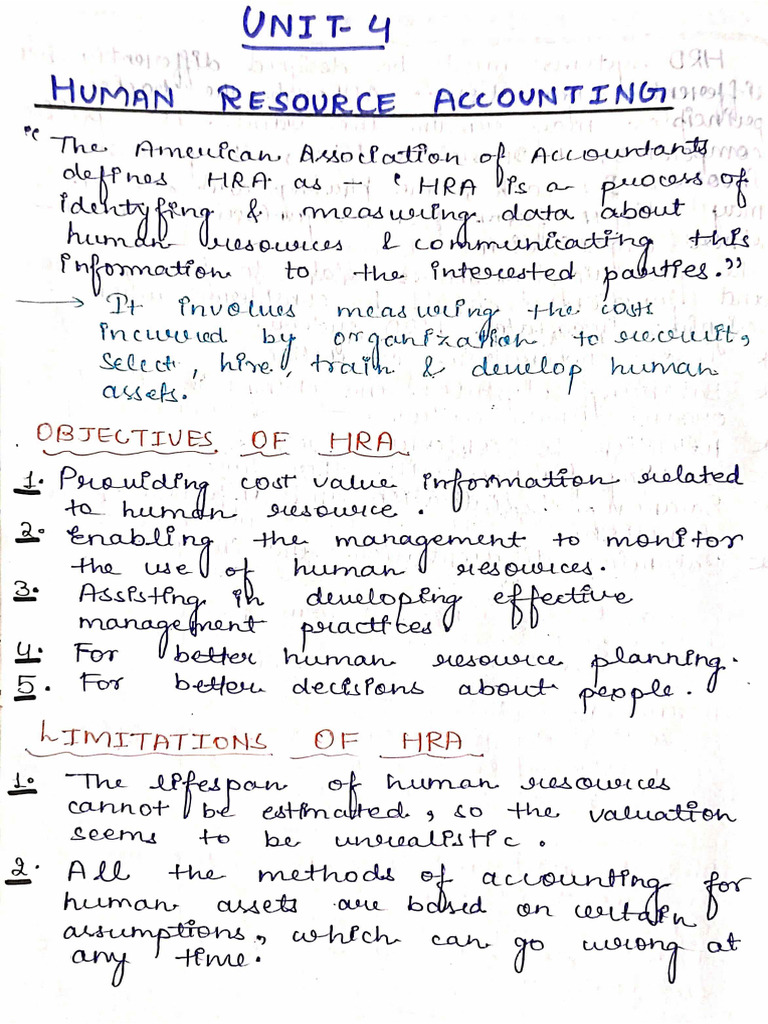 UNIT-4
HUMAN RESOURCE ACCOUNTING
"The American Association of Accountants
defines HRA as - 'HRA is a process of
identyfing & measuring data about
human resources & communicating this
information to the interested parties."
→ It involves measuring the costs
incurred by organization to recruit,
select, hire, train & develop human
assets.
OBJECTIVES OF HRA
1. Providing cost value information related
to human resource.
2. Enabling the management to monitor
the use of human resources.
3. Assisting in developing effective
management practices.
4. For better human resource planning.
5. For better decisions about people.
LIMITATIONS OF HRA
1. The lifespan of human resources
cannot be estimated, so the valuation
seems to be unrealistic.
2. All the methods of accounting for
human assets are based on certain
assumptions, which can go wrong at
any time.